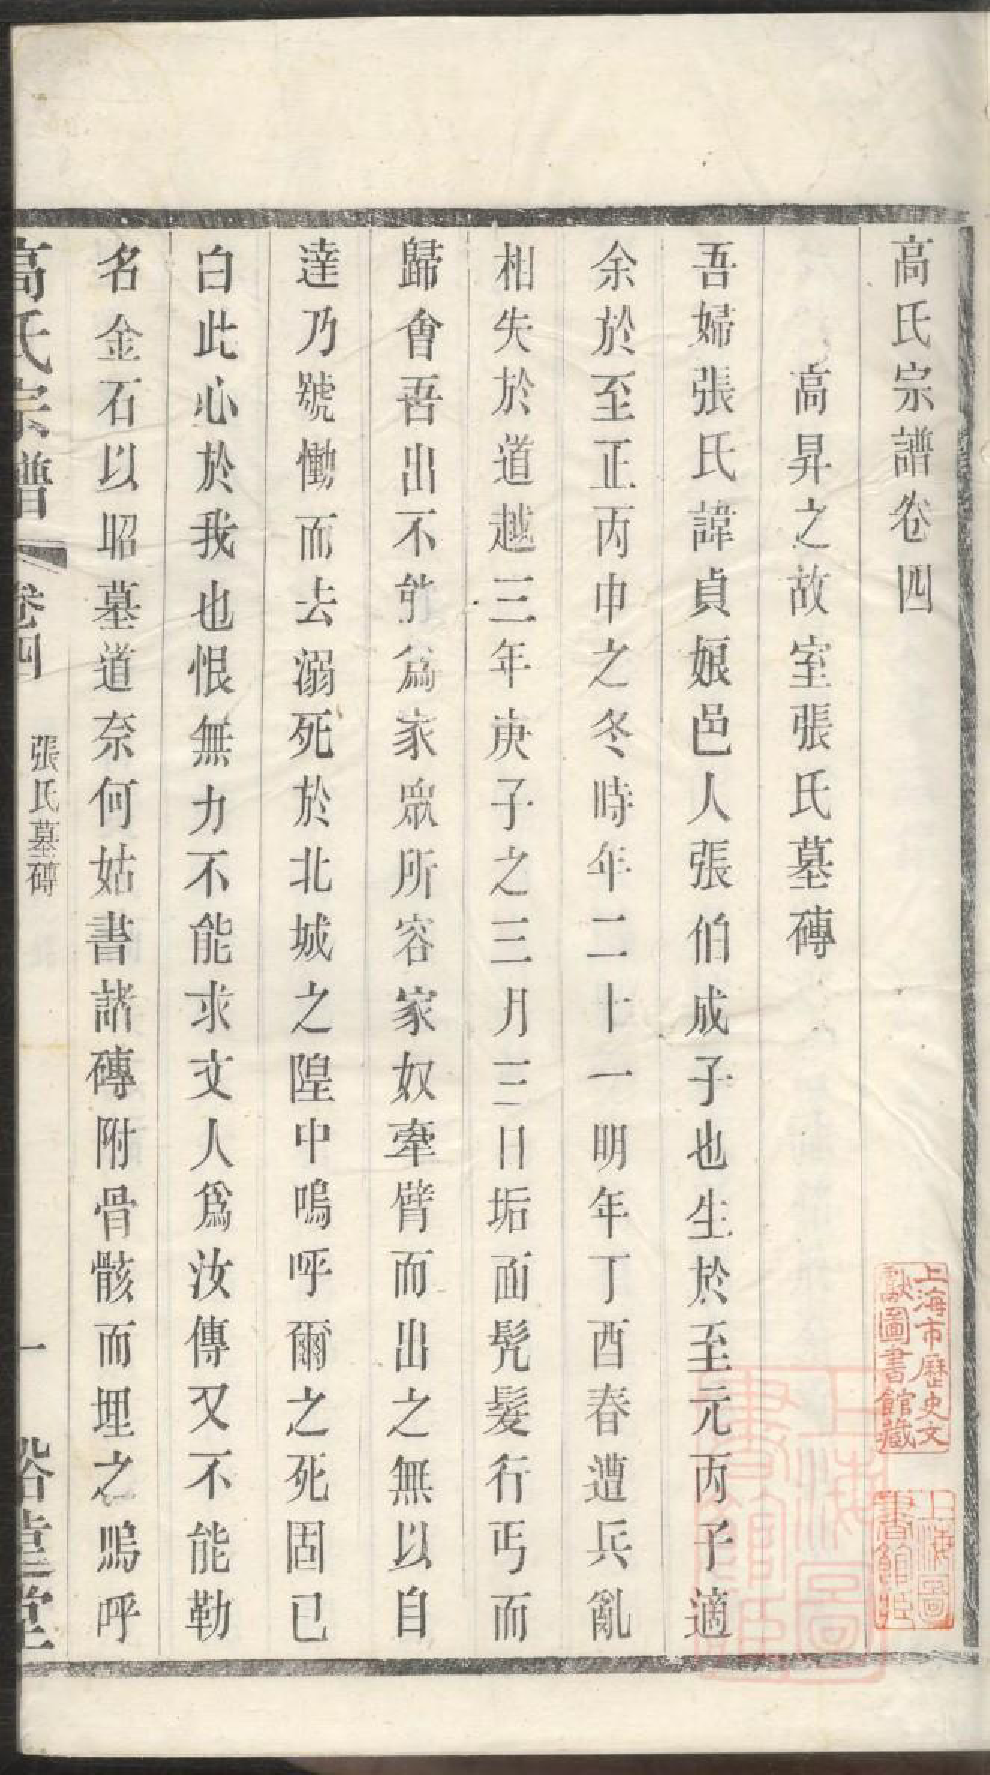 高氏宗譜卷四
高昇之故室張氏墓磚
吾婦張氏諱貞娘邑人張伯成子也生於至元丙子適
余於至正丙申之冬時年二十一明年丁酉春遭兵亂
相失於道越三年庚子之三月三日垢面髠髮行丐而
歸會吾出不能爲家眾所容家奴牽臂而出之無以自
達乃號慟而去溺死於北城之隍中嗚呼爾之死固已
白此心於我也恨無力不能求文人爲汝傳又不能勒
名金石以昭墓道奈何姑書諸磚附骨骸而埋之嗚呼
高氏宗譜
卷四
張氏墓磚
一
堂
上海市歷史文獻圖書館藏
上海圖書館藏
上海圖書館藏